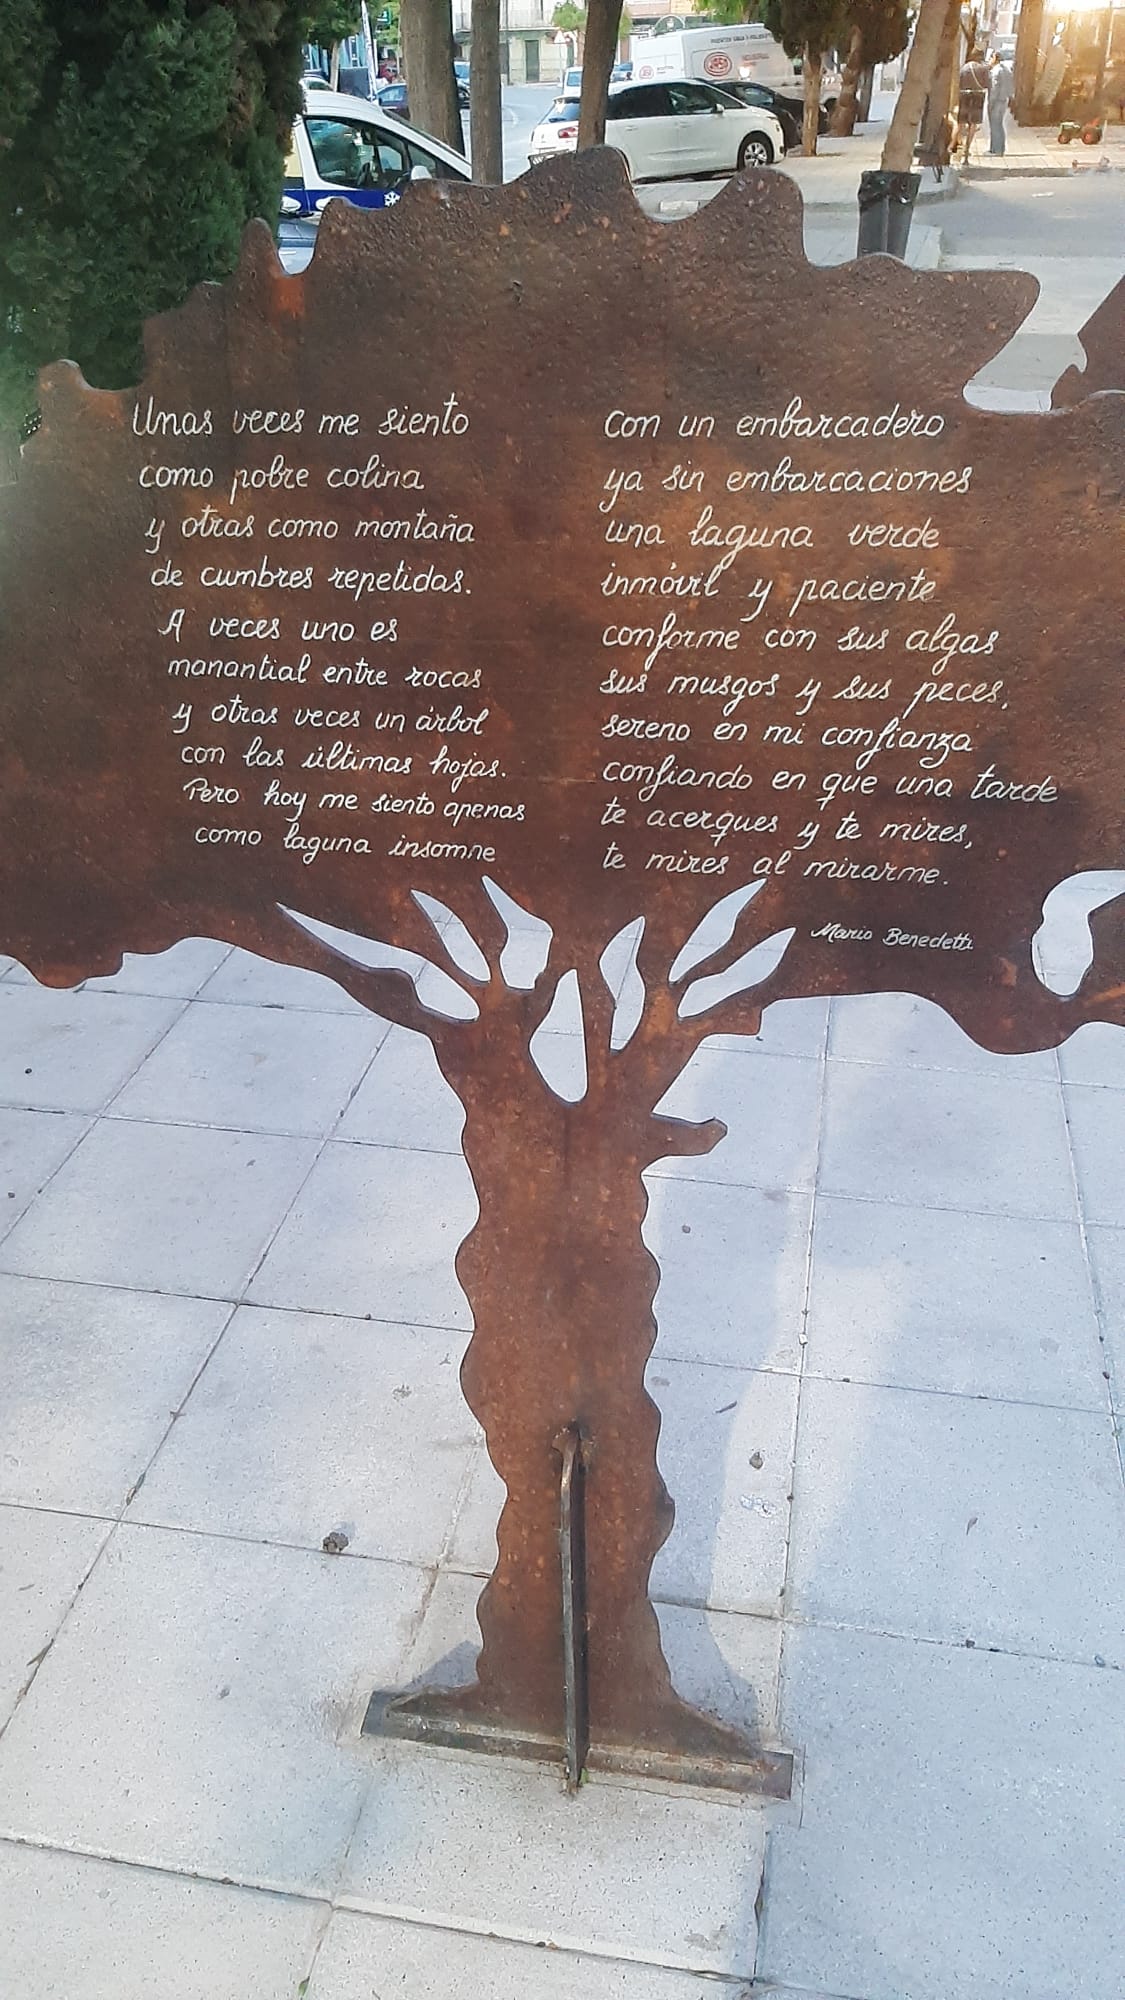 Unas veces me siento
como pobre colina
y otras como montaña
de cumbres repetidas.
A veces uno es
manantial entre rocas
y otras veces un árbol
con las últimas hojas.
Pero hoy me siento apenas
como laguna insomne
con un embarcadero
ya sin embarcaciones
una laguna verde
inmóvil y paciente
conforme con sus algas
sus musgos y sus peces,
sereno en mi confianza
confiando en que una tarde
te acerques y te mires,
te mires al mirarme.
Mario Benedetti